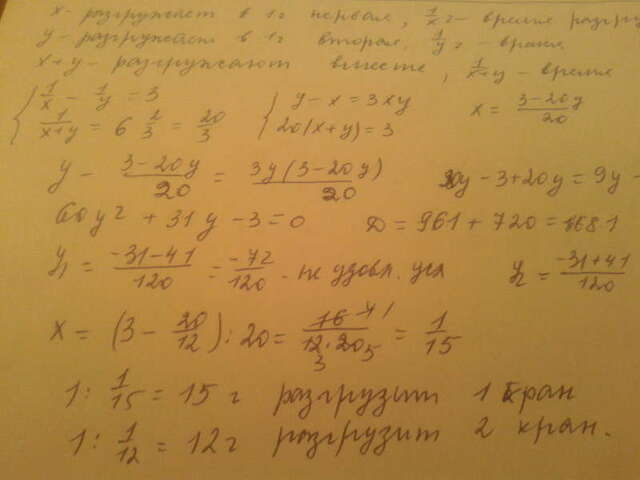 x - разгружает в 1ч первая, 1/x ч - время разгру
y - разгружает в 1ч вторая, 1/y ч - время
x+y - разгружают вместе, 1/x+y - время
{ 1/x - 1/y = 3 { y - x = 3xy x = 3-20y/20
1/x+y = 6 2/3 = 20/3 20(x+y) = 3
y - 3-20y/20 = 3y(3-20y)/20 20y - 3 + 20y = 9y -
60y² + 31y - 3 = 0 D = 961 + 720 = 1681
y₁ = -31-41/120 = -72/120 - не удовл. усл y₂ = -31+41/120
x = (3 - 20/12) : 20 = 16/12·20 = 1/15
1 : 1/15 = 15 ч разгрузит 1 кран
1 : 1/12 = 12 ч разгрузит 2 кран.